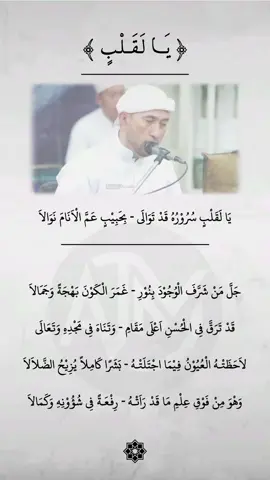 ﴿ يَا لَقَلْبٍ ﴾
يَا لَقَلْبٍ سُرُوْرُهُ قَدْ تَوَالَى - بِحَبِيْبٍ عَمَّ الْأَنَامَ نَوَالاَ
جَلَّ مَنْ شَرَّفَ الْوُجُوْدَ بِنُوْرٍ - غَمَرَ الْكَوْنَ بَهْجَةً وَجَمَالاَ
قَدْ تَرَقَّى فِى الْحُسْنِ اَعْلَى مَقَامٍ - وَتَنَاهَ فِى مَجْدِهِ وَتَعَالَى
لاَحَظَتْهُ الْعُيُوْنُ فِيْمَا اجْتَلَتْهُ - بَشَرًا كَامِلاً يُزِيْحُ الضَّلاَلاَ
وَهُوَ مِنْ فَوْقِ عِلْمِ مَا قَدْ رَاَتْهُ - رِفْعَةً فِى شُؤُوْنِهِ وَكَمَالاَ